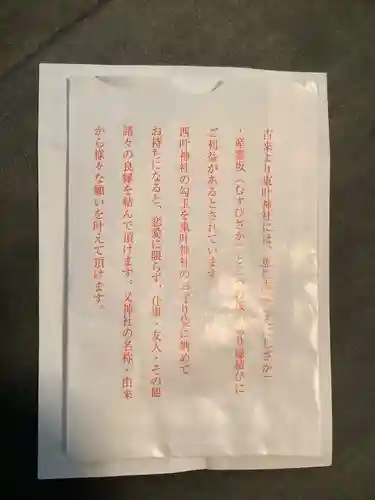 古来より東叶神社には、
・産霊坂(むすびざか)と
ご利益があるとされています
西叶神社の勾玉を東叶神社のお守り袋に納めて
お持ちになると、恋愛に限らず、仕事・友人・その他
諸々の良縁を結んで頂けます。又神社の名称・由来
から様々な願いを叶えて頂けます。